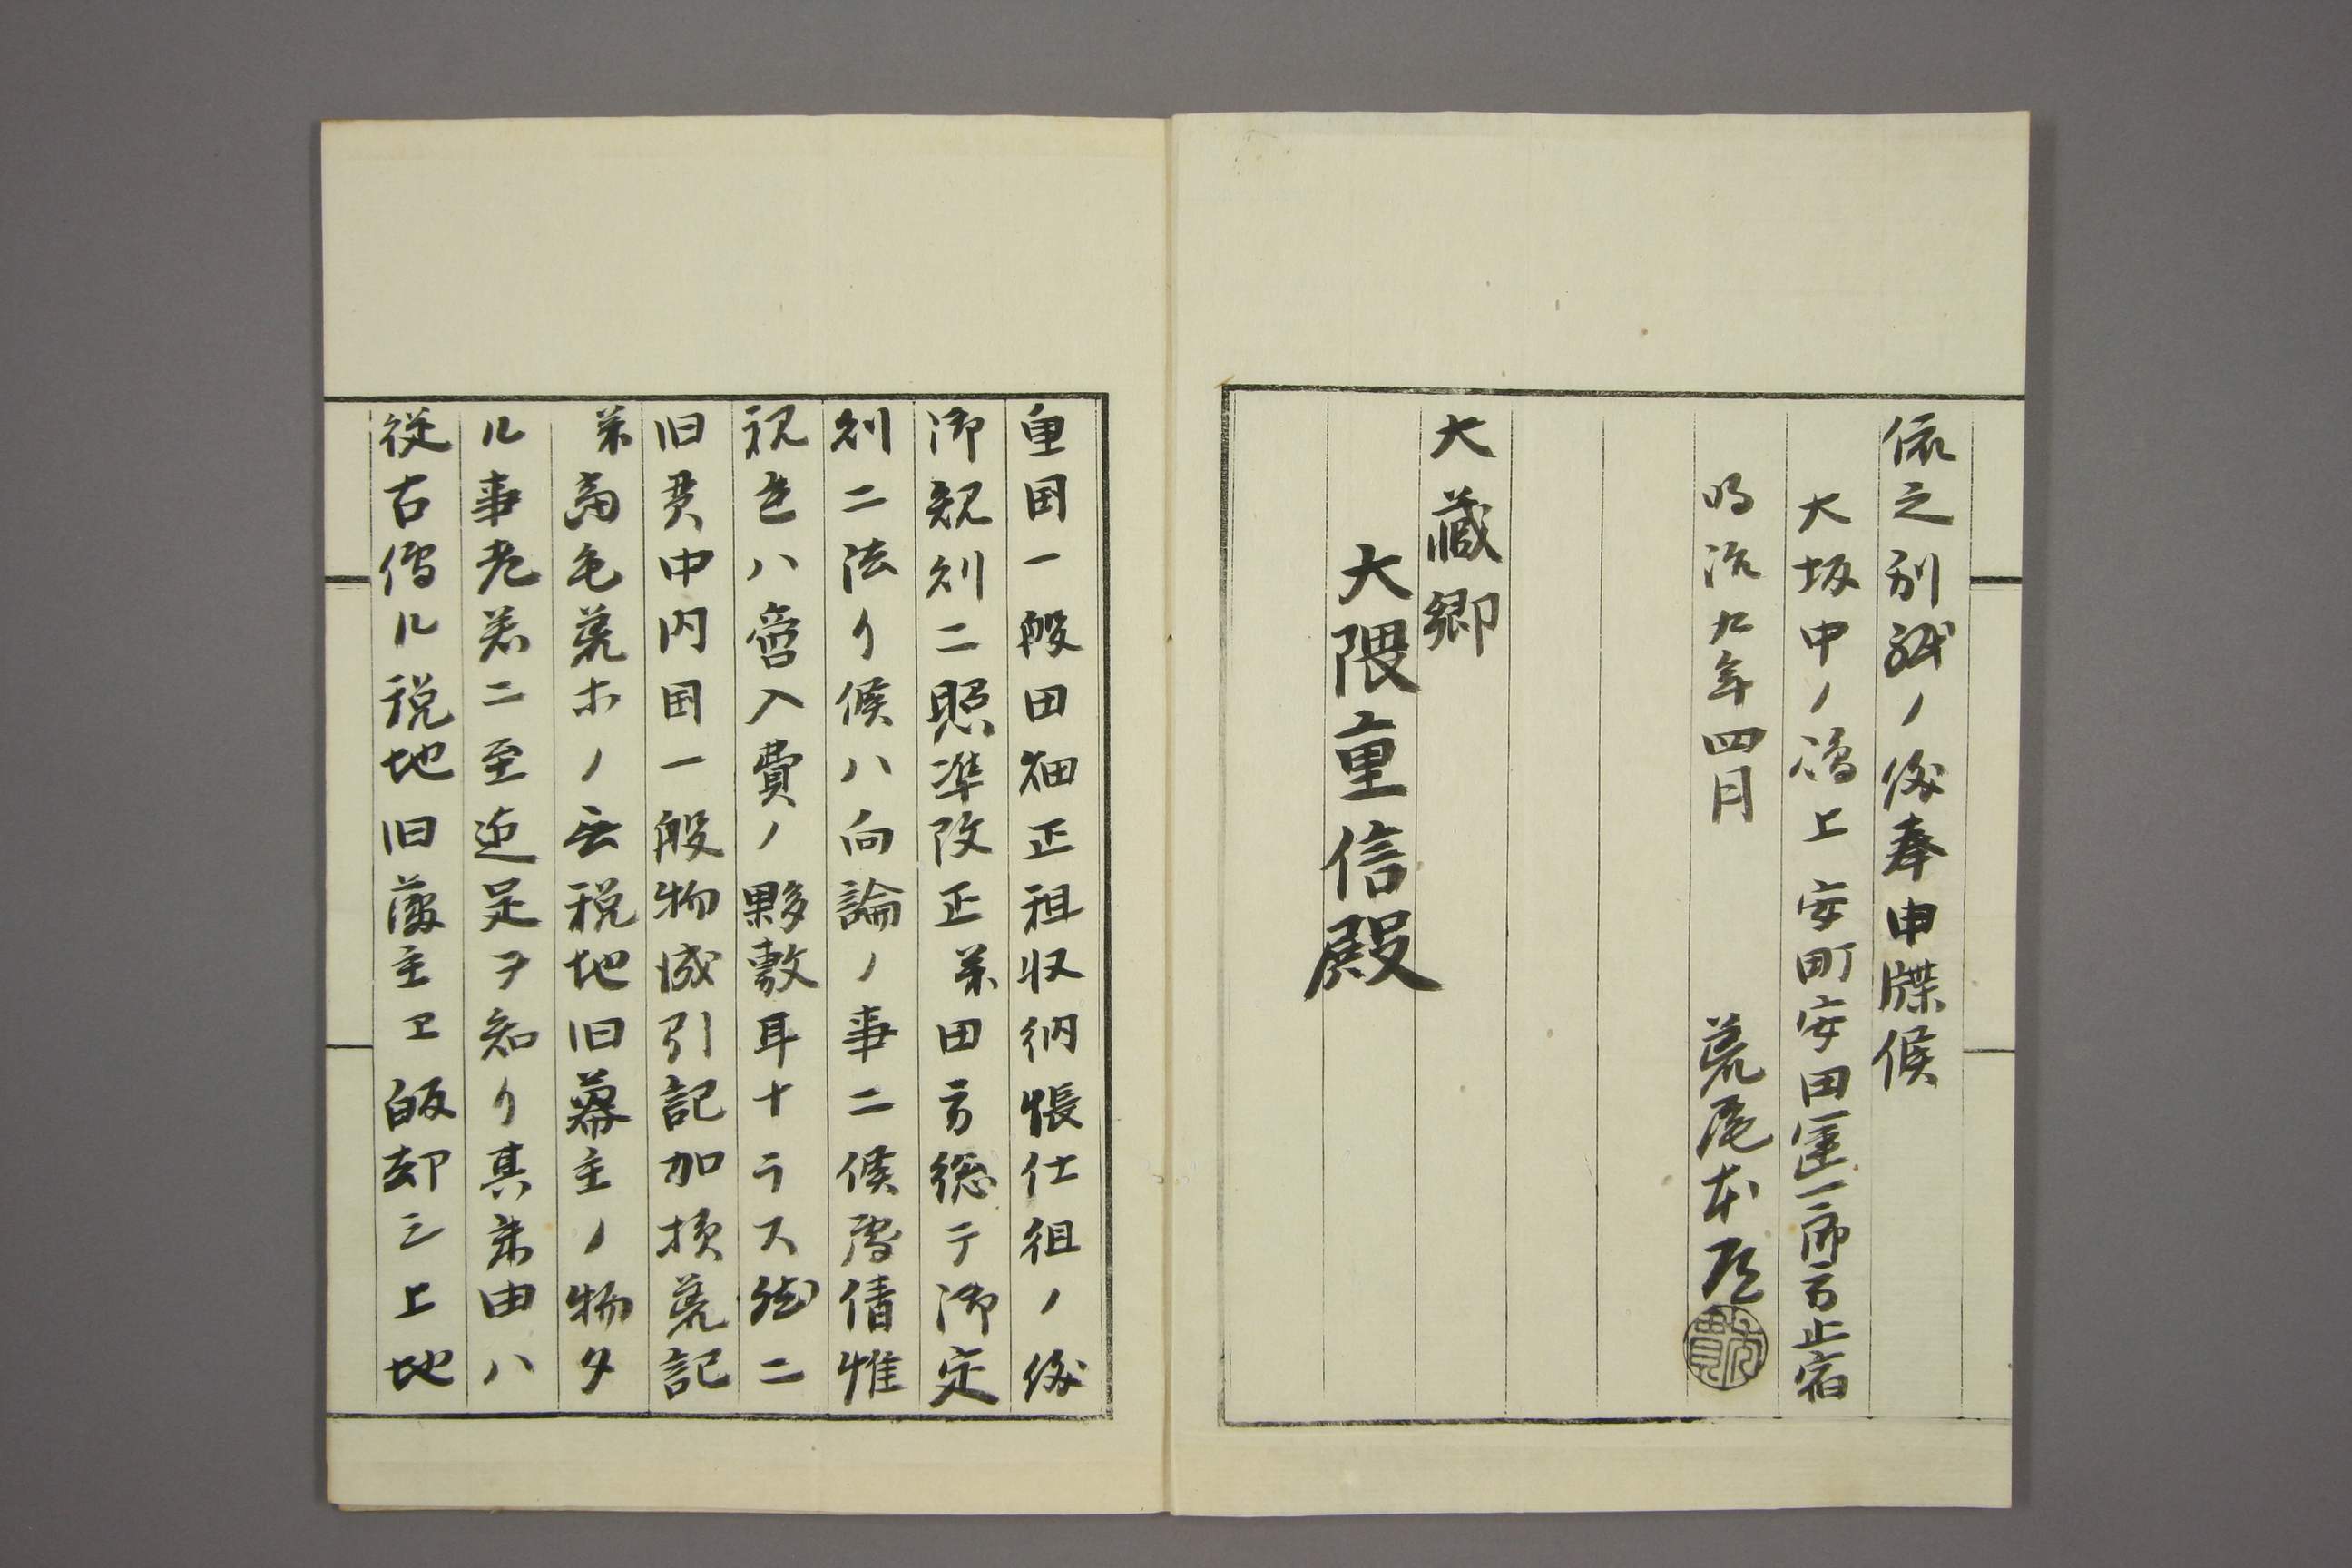 依之別紙ノ儀奉申牒候
大坂中ノ嶋上安町安田匡一郎方止宿
明治九年四月　　荒尾本
大藏卿
大隈重信殿
皇国一般田畑正租収納帳仕組ノ儀
御規則ニ照準改正築田方総テ御定
則ニ法リ候ハ向論ノ事ニ候處倩惟
視ハ入費ノ夥敷耳ナラス然ニ
旧貫中内国一般物成引記加損荒記
ノ税地旧幕主ノ物タ
ル事ニ至迄足ヲ知リ其来由ハ
従古傳ル税地旧藩主ヱ皈却シ上地